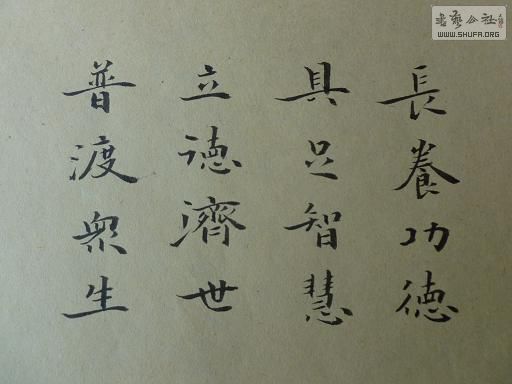 長養功德
具足智慧
立德濟世
普渡衆生
書藝公社
WWW.SHUFA.ORG